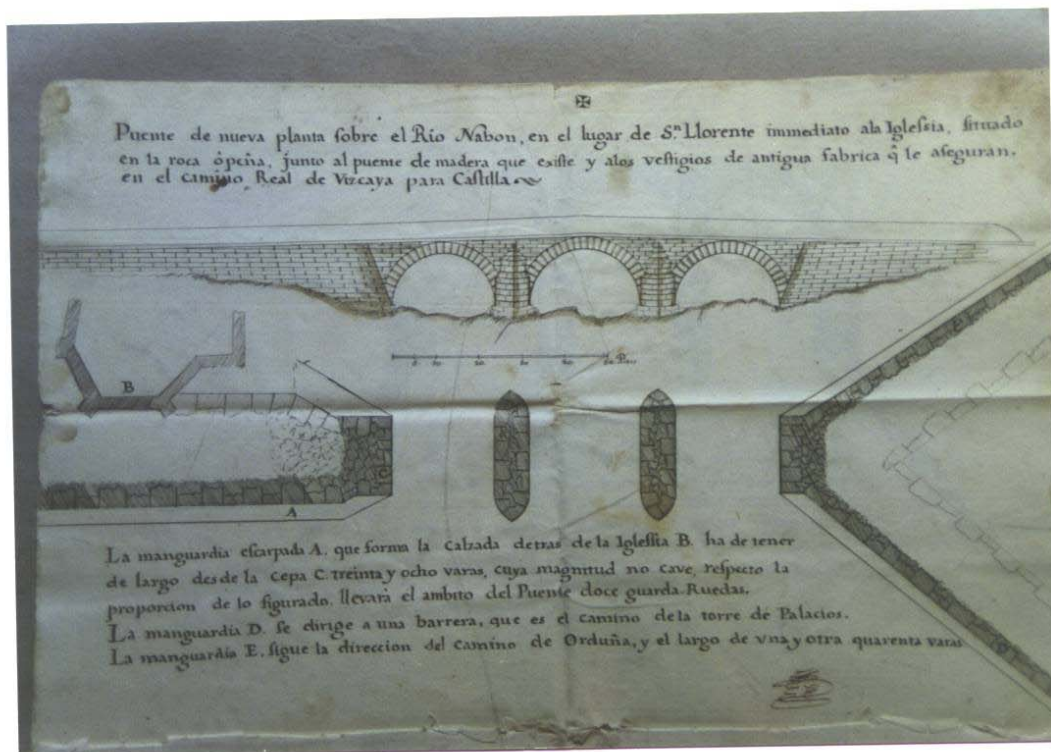 ✠
Puente de nueva planta ſobre el Río Nabon, en el lugar de Sⁿ Llorente immediato ala Igleſsia, ſituado
en la roca junto al puente de madera que exiſte y alos veſtigios de antigua fabrica q̂ le aſeguran.
en el camino Real de Vizcaya para Caſtilla
B
A
C
D
La manguardia eſcarpada A. que forma la Calzada detras de la Igleſsia B. ha de tener
de largo desde la cepa C. treinta y ocho varas, cuya magnitud no cave, reſpecto la
proporcion de lo figurado. llevará el ambito del Puente doce guarda-Ruedas.
La manguardia D. ſe dirige a una barrera, que es el camino de la torre de Palacios.
La manguardia E. ſigue la direccion del Camino de Orduña, y el largo de vna y otra quarenta varas